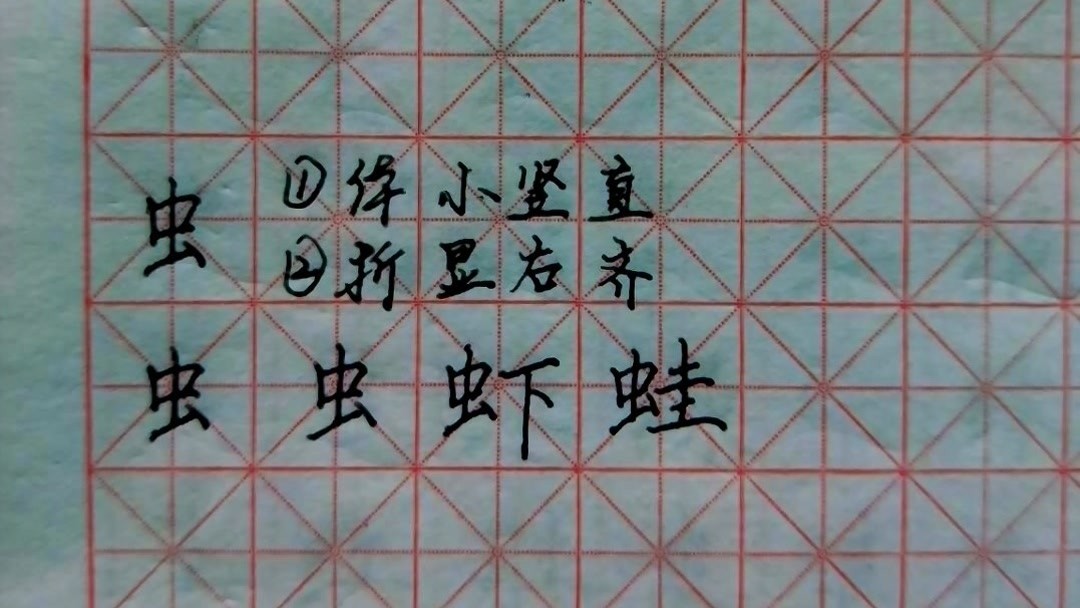 虫
①体小竖直
②折显右齐
虫 虫 虾 蛙